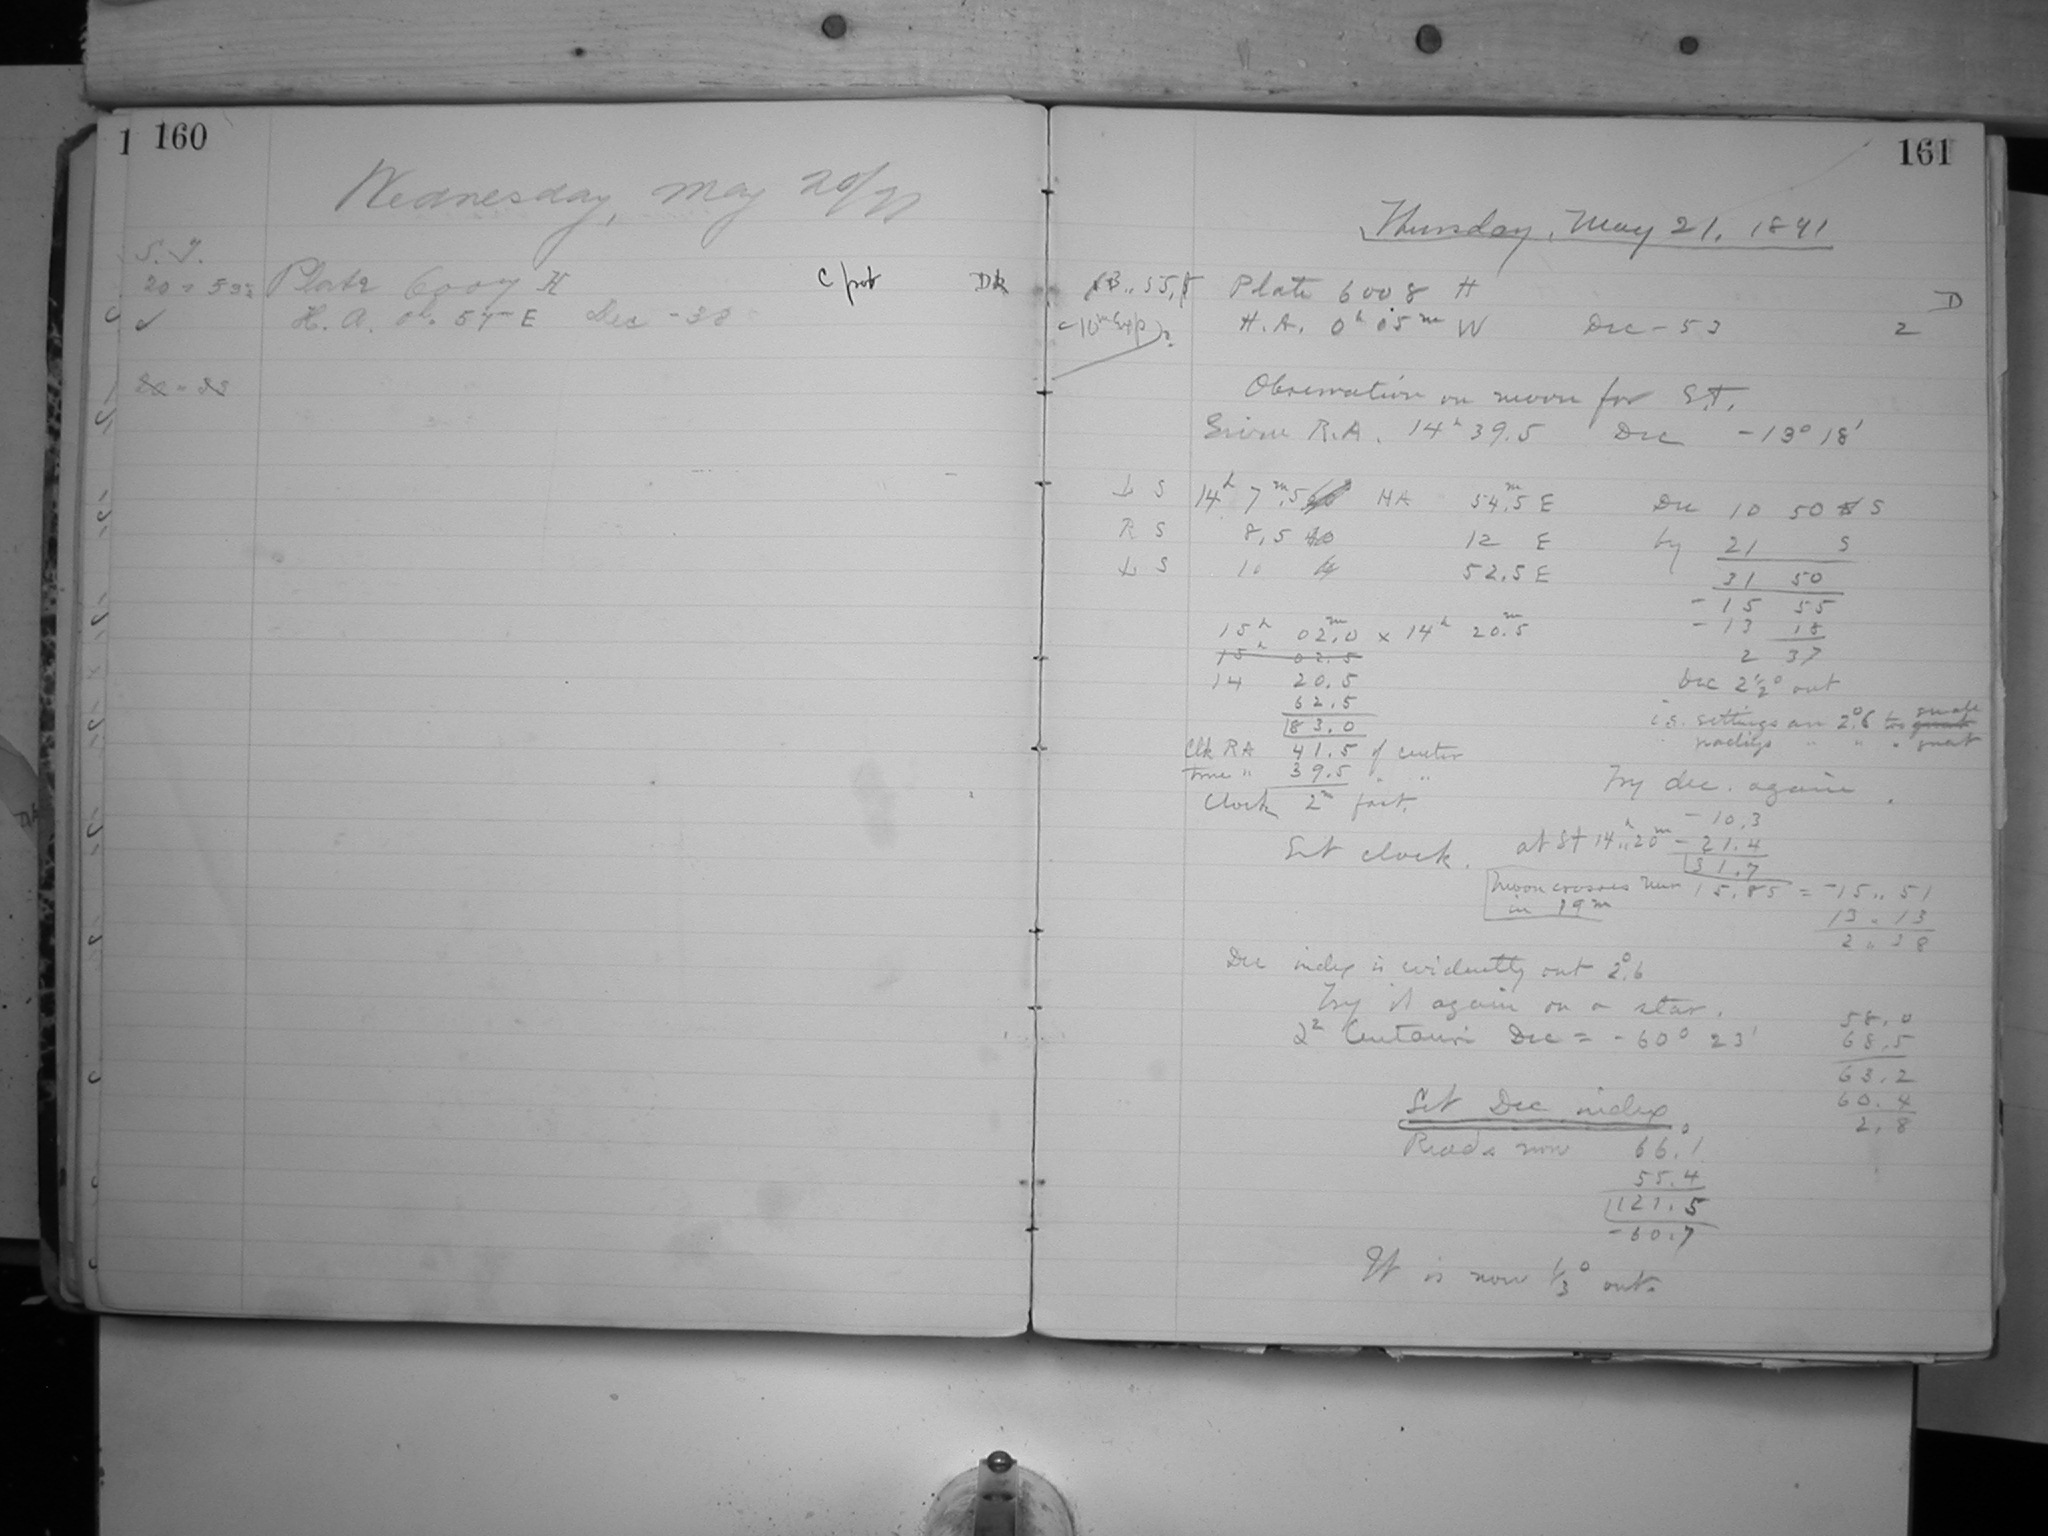 1 160
Wednesday, May 20/91
S. T.
Plate 6007 H C/pot Dk
H. A. 0h. 54 E Dec -38
161
Thursday, May 21, 1891
13.. 55,5 Plate 6008 H D
-10m Exp? H.A. 0h 05m W Dec -53 2
Observation on moon for S.T.
Given R.A. 14h 39.5 Dec -13° 18'
L S 14h 7m.5 HA 54m.5 E Dec 10 50 S
R S 8,5 12 E by 21 S
L S 10 52.5 E 31 50
- 15 55
15h 02m.0 x 14h 20m.5 - 13 18
15h 02.5 2 37
14 20.5 Dec 2 1/2° out
62.5 i.e. settings are 2°.6 too small
83.0 readings " " " great
Clk RA 41.5 of center
True " 39.5 " "
Clock 2m fast.
Try dec. again.
- 10.3
Set clock. at St 14h..20m - 21.4
31.7
Moon crosses near 15.85 = -15..51
in 19m 13..13
2..38
Dec index is evidently out 2°.6
Try it again on a star.
58.0
Centauri Dec = -60° 23' 68.5
63.2
Set Dec index 60.4
2.8
Reads now 66°.1
55.4
121.5
-60.7
It is now 1/3° out.